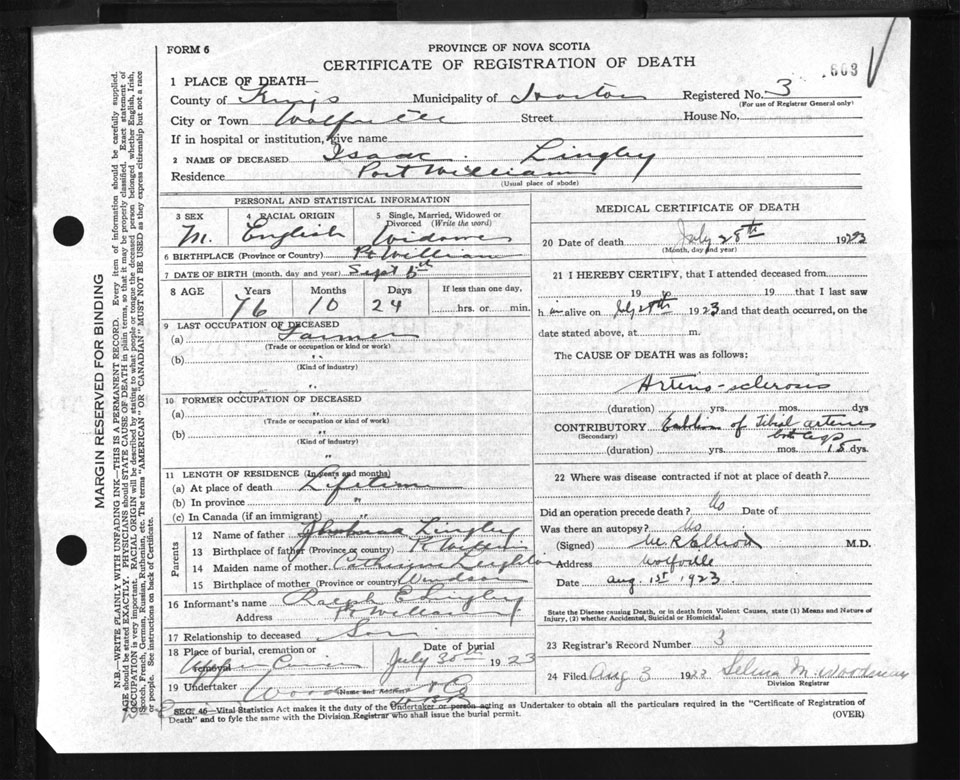 FORM 6
PROVINCE OF NOVA SCOTIA
CERTIFICATE OF REGISTRATION OF DEATH
663
1 PLACE OF DEATH—
County of Kings Municipality of Horton Registered No. 3
(For use of Registrar General only)
City or Town Wolfville Street House No.
If in hospital or institution, give name
2 NAME OF DECEASED Isaac Lingley
Residence Port William
(Usual place of abode)
MARGIN RESERVED FOR BINDING
N.B.—WRITE PLAINLY WITH UNFADING INK—THIS IS A PERMANENT RECORD. Every item of information should be carefully supplied.
AGE should be stated EXACTLY. PHYSICIANS should STATE CAUSE OF DEATH in plain terms, so that it may be properly classified. Exact statement of
OCCUPATION is very important. RACIAL ORIGIN will be described by stating to what people or tongue the deceased person belonged whether English, Irish,
Scotch, French, German, Russian, Ruthenian, etc. The terms "AMERICAN" OR "CANADIAN" MUST NOT BE USED as they express citizenship but not a race
or people. See instructions on back of Certificate.
PERSONAL AND STATISTICAL INFORMATION
3 SEX M.
4 RACIAL ORIGIN English
5 Single, Married, Widowed or Divorced (Write the word) Widower
6 BIRTHPLACE (Province or Country) Pt William
7 DATE OF BIRTH (month, day and year) Sept
8 AGE Years 76 Months 10 Days 24 If less than one day, hrs. or min.
9 LAST OCCUPATION OF DECEASED
(a) Farmer
(Trade or occupation or kind or work)
(b) "
(Kind of industry)
"
10 FORMER OCCUPATION OF DECEASED
(a) "
(Trade or occupation or kind of work)
(b) "
(Kind of industry)
"
11 LENGTH OF RESIDENCE (In years and months)
(a) At place of death Lifetime
(b) In province "
(c) In Canada (if an immigrant) "
Parents
12 Name of father Lingley
13 Birthplace of father (Province or country) Pt William
14 Maiden name of mother Catherine Leighton
15 Birthplace of mother (Province or country) Windsor
16 Informant's name Ralph E Lingley
Address Pt William
17 Relationship to deceased Son
18 Place of burial, cremation or removal Date of burial
July 30th 1923
19 Undertaker
(Name and Address)
MEDICAL CERTIFICATE OF DEATH
20 Date of death July 28th 1923
(Month, day and year)
21 I HEREBY CERTIFY, that I attended deceased from
19 to 19 that I last saw
h im alive on July 28th 1923 and that death occurred, on the
date stated above, at m.
The CAUSE OF DEATH was as follows:
Arterio-sclerosis
(duration) yrs. mos. dys
CONTRIBUTORY of tibial arteries
(Secondary) both legs
(duration) yrs. mos. 15 dys.
22 Where was disease contracted if not at place of death?
Did an operation precede death? No Date of
Was there an autopsy? No
(Signed) M R Elliott M.D.
Address Wolfville
Date Aug 1st 1923
State the Disease causing Death, or in death from Violent Causes, state (1) Means and Nature of
Injury, (2) whether Accidental, Suicidal or Homicidal.
23 Registrar's Record Number 3
24 Filed Aug 3 1923 Selina M. Woodman
Division Registrar
SEC. 46—Vital Statistics Act makes it the duty of the Undertaker or person acting as Undertaker to obtain all the particulars required in the "Certificate of Registration of
Death" and to fyle the same with the Division Registrar who shall issue the burial permit.
(OVER)